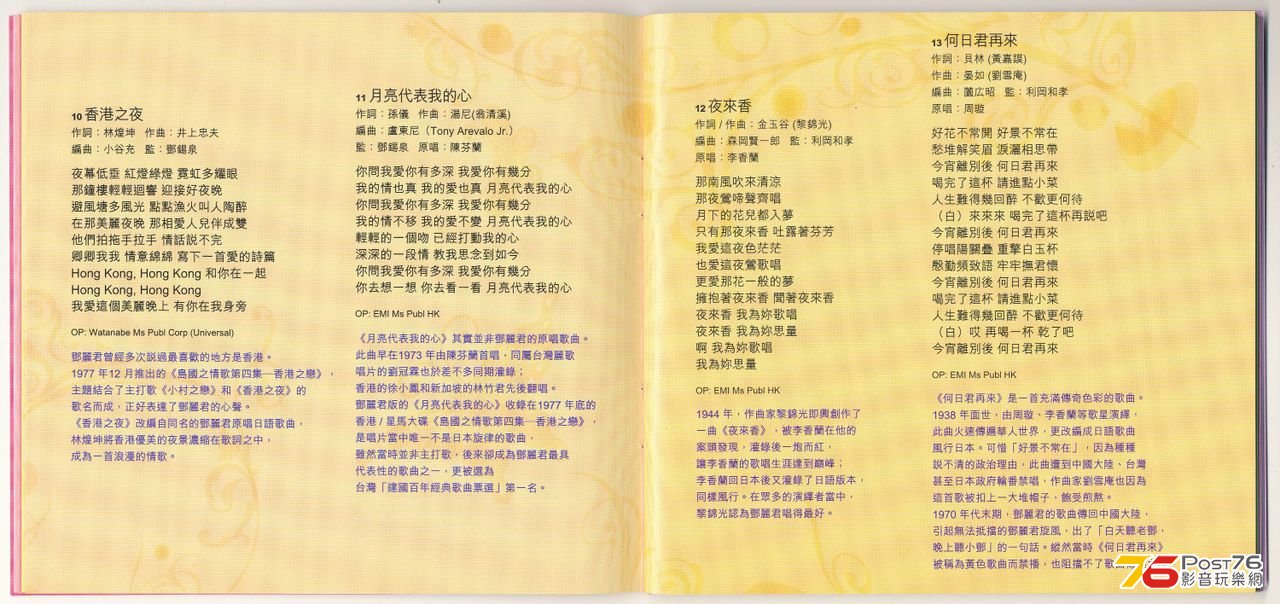 10 香港之夜
作詞：林煌坤 作曲：井上忠夫
編曲：小谷充 監：鄧錫泉
夜幕低垂 紅燈綠燈 霓虹多耀眼
那鐘樓輕輕迴響 迎接好夜晚
避風塘多風光 點點漁火叫人陶醉
在那美麗夜晚 那相愛人兒伴成雙
他們拍拖手拉手 情話說不完
卿卿我我 情意綿綿 寫下一首愛的詩篇
Hong Kong, Hong Kong 和你在一起
Hong Kong, Hong Kong
我愛這個美麗晚上 有你在我身旁
OP: Watanabe Ms Publ Corp (Universal)
鄧麗君曾經多次説過最喜歡的地方是香港。
1977 年12 月推出的《島國之情歌第四集─香港之戀》，
主題結合了主打歌《小村之戀》和《香港之夜》的
歌名而成，正好表達了鄧麗君的心聲。
《香港之夜》改編自同名的鄧麗君原唱日語歌曲，
林煌坤將香港優美的夜景濃縮在歌詞之中，
成為一首浪漫的情歌。
11 月亮代表我的心
作詞：孫儀 作曲：湯尼(翁清溪)
編曲：盧東尼（Tony Arevalo Jr.）
監：鄧錫泉 原唱：陳芬蘭
你問我愛你有多深 我愛你有幾分
我的情也真 我的愛也真 月亮代表我的心
你問我愛你有多深 我愛你有幾分
我的情不移 我的愛不變 月亮代表我的心
輕輕的一個吻 已經打動我的心
深深的一段情 教我思念到如今
你問我愛你有多深 我愛你有幾分
你去想一想 你去看一看 月亮代表我的心
OP: EMI Ms Publ HK
《月亮代表我的心》其實並非鄧麗君的原唱歌曲。
此曲早在1973 年由陳芬蘭首唱，同屬台灣麗歌
唱片的劉冠霖也於差不多同期灌錄；
香港的徐小鳳和新加坡的林竹君先後翻唱。
鄧麗君版的《月亮代表我的心》收錄在1977 年底的
香港 / 星馬大碟《島國之情歌第四集─香港之戀》，
是唱片當中唯一不是日本旋律的歌曲，
雖然當時並非主打歌，後來卻成為鄧麗君最具
代表性的歌曲之一，更被選為
台灣「建國百年經典歌曲票選」第一名。
12 夜來香
作詞 / 作曲：金玉谷 (黎錦光)
編曲：森岡賢一郎 監：利岡和孝
原唱：李香蘭
那南風吹來清涼
那夜鶯啼聲齊唱
月下的花兒都入夢
只有那夜來香 吐露著芬芳
我愛這夜色茫茫
也愛這夜鶯歌唱
更愛那花一般的夢
擁抱著夜來香 聞著夜來香
夜來香 我為妳歌唱
夜來香 我為妳思量
啊 我為妳歌唱
我為妳思量
OP: EMI Ms Publ HK
1944 年，作曲家黎錦光即興創作了
一曲《夜來香》，被李香蘭在他的
案頭發現，灌錄後一炮而紅，
讓李香蘭的歌唱生涯達到巔峰；
李香蘭回日本後又灌錄了日語版本，
同樣風行。在眾多的演繹者當中，
黎錦光認為鄧麗君唱得最好。
13 何日君再來
作詞：貝林 (黃嘉謨)
作曲：晏如 (劉雪庵)
編曲：薗広昭 監：利岡和孝
原唱：周璇
好花不常開 好景不常在
愁堆解笑眉 淚灑相思帶
今宵離別後 何日君再來
喝完了這杯 請進點小菜
人生難得幾回醉 不歡更何待
（白）來來來 喝完了這杯再説吧
今宵離別後 何日君再來
停唱陽關疊 重擎白玉杯
慇勤頻致語 牢牢撫君懷
今宵離別後 何日君再來
喝完了這杯 請進點小菜
人生難得幾回醉 不歡更何待
（白）哎 再喝一杯 乾了吧
今宵離別後 何日君再來
OP: EMI Ms Publ HK
《何日君再來》是一首充滿傳奇色彩的歌曲。
1938 年面世，由周璇、李香蘭等歌星演繹，
此曲火速傳遍華人世界，更改編成日語歌曲
風行日本。可惜「好景不常在」，因為種種
説不清的政治理由，此曲遭到中國大陸、台灣
甚至日本政府輪番禁唱，作曲家劉雪庵也因為
這首歌被扣上一大堆帽子，飽受煎熬。
1970 年代末期，鄧麗君的歌曲傳回中國大陸，
引起無法抵擋的鄧麗君旋風，出了「白天聽老鄧，
晚上聽小鄧」的一句話。縱然當時《何日君再來》
被稱為黃色歌曲而禁播，也阻擋不了歌曲
76 Post76
影音玩樂網